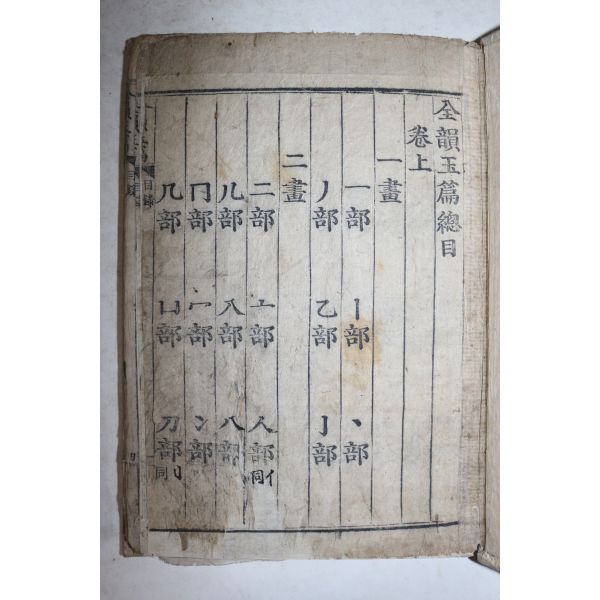 全韻玉篇總目
卷上
一畫
一部 丨部 丶部
丿部 乙部 亅部
二畫
二部 亠部 人部亻同
儿部 入部 八部
冂部 冖部 冫部
几部 凵部 刀部刂同
目錄